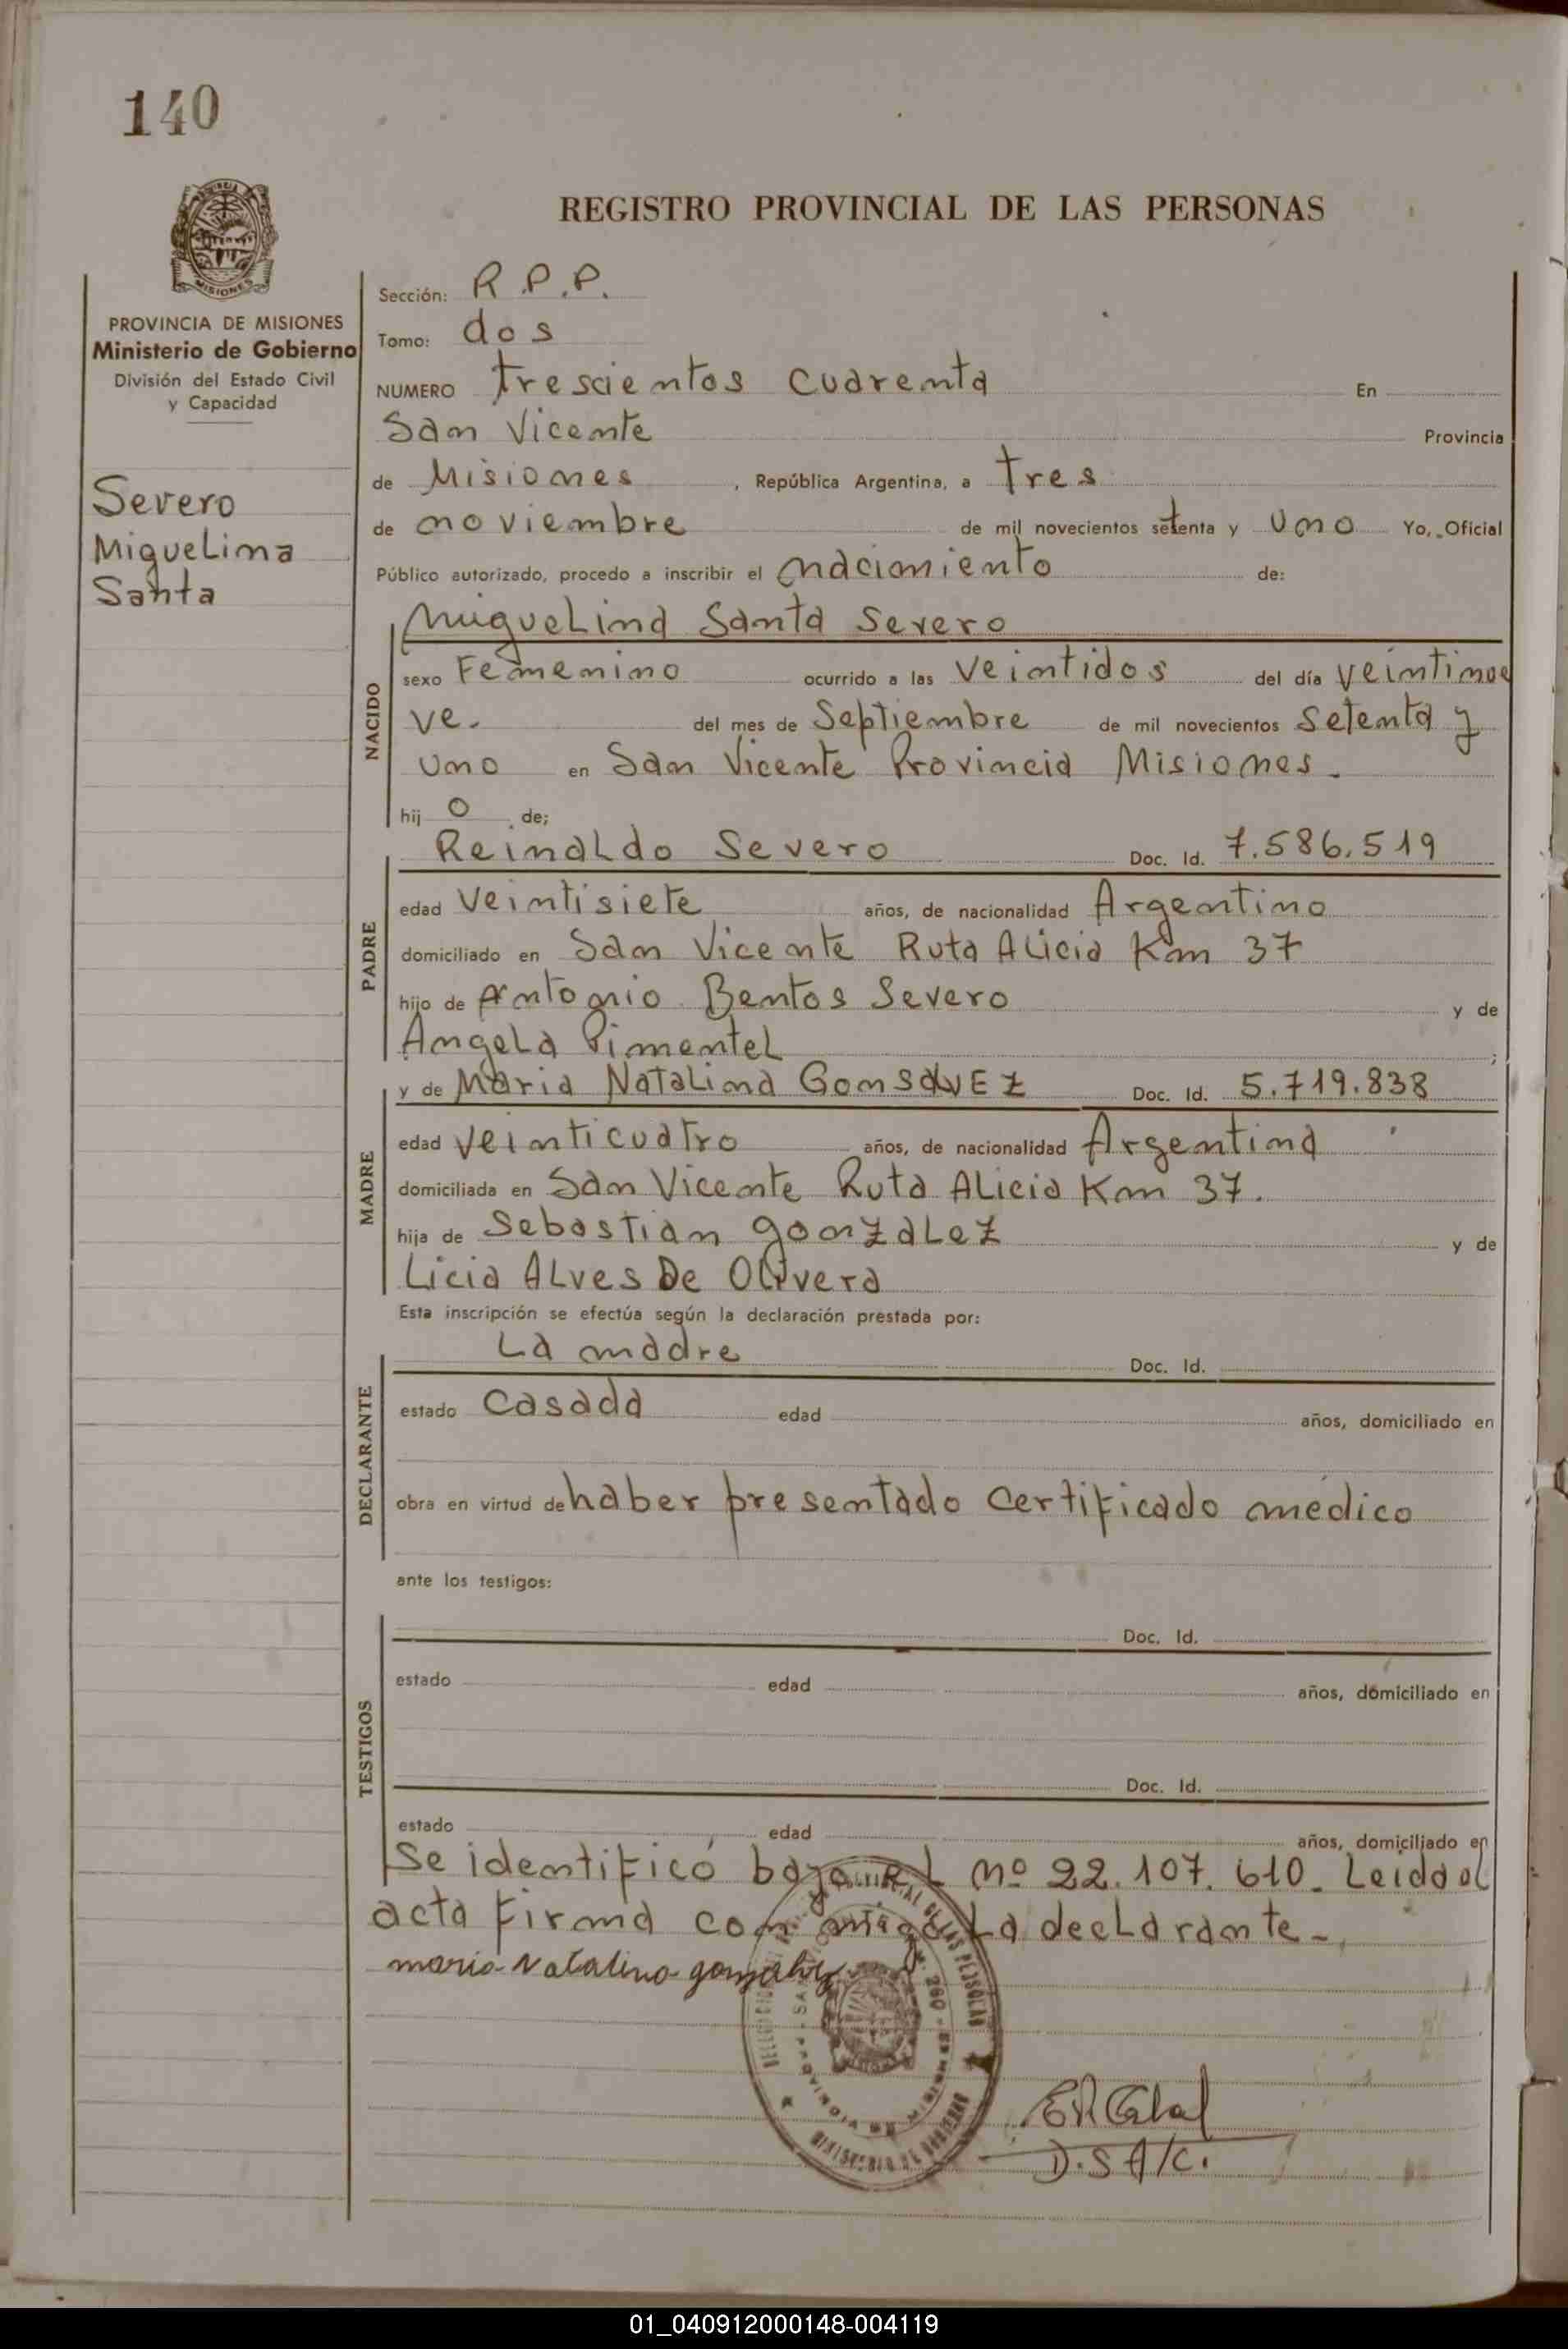 140
REGISTRO PROVINCIAL DE LAS PERSONAS
MISIONES
PROVINCIA DE MISIONES
Ministerio de Gobierno
División del Estado Civil
y Capacidad
Severo
Miguelina
Santa
Sección: R.P.P.
Tomo: dos
NUMERO trescientos cuarenta En
San Vicente Provincia
de Misiones, República Argentina, a tres
de noviembre de mil novecientos setenta y uno Yo, Oficial
Público autorizado, procedo a inscribir el nacimiento de:
NACIDO
Miguelina Santa Severo
sexo Femenino ocurrido a las veintidos del día veintinue
ve. del mes de Septiembre de mil novecientos setenta y
uno en San Vicente Provincia Misiones.
hij o de;
PADRE
Reinaldo Severo Doc. Id. 7.586.519
edad veintisiete años, de nacionalidad Argentino
domiciliado en San Vicente Ruta Alicia Km 37
hijo de Antonio Bentos Severo y de
Angela Pimentel;
MADRE
y de Maria Natalina Gonsalvez Doc. Id. 5.719.838
edad veinticuatro años, de nacionalidad Argentina
domiciliada en San Vicente Ruta Alicia Km 37.
hija de Sebastian gonzalez y de
Licia Alves De Olivera
Esta inscripción se efectúa según la declaración prestada por:
DECLARANTE
La madre Doc. Id.
estado Casada edad años, domiciliado en
obra en virtud de haber presentado certificado médico
ante los testigos:
TESTIGOS
Doc. Id.
estado edad años, domiciliado en
Doc. Id.
estado edad años, domiciliado en
Se identificó bajo el nº 22.107.610. Leida el
acta firma conmigo la declarante.
maria natalina gonsalvez
PROVINCIA DE MISIONES
MINISTERIO DE GOBIERNO
D.S A/C.
01_040912000148-004119